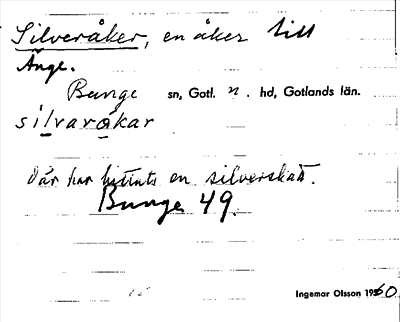 Silveråker, en åker till
Änge.
Bunge sn, Gotl. n. hd, Gotlands län.
silvaråkar
där har hittats en silverskatt.
Bunge 49.
Ingemar Olsson 1960